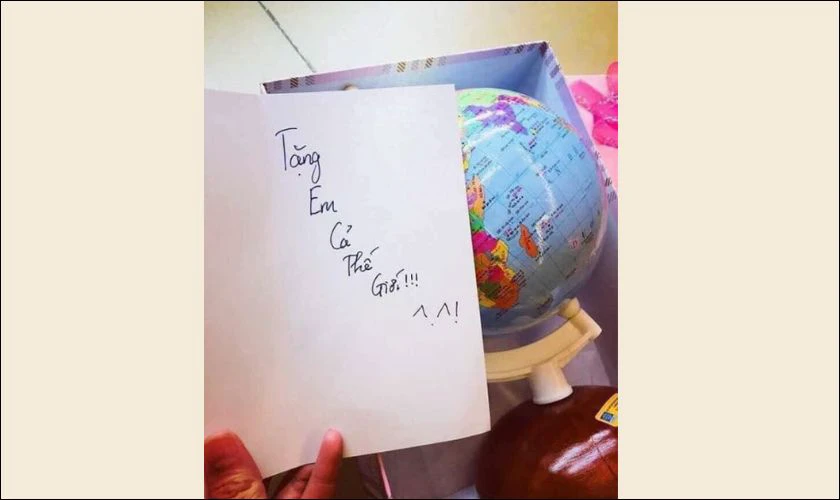 Tặng
Em
Cả
Thế
Giới!!!
^.^!